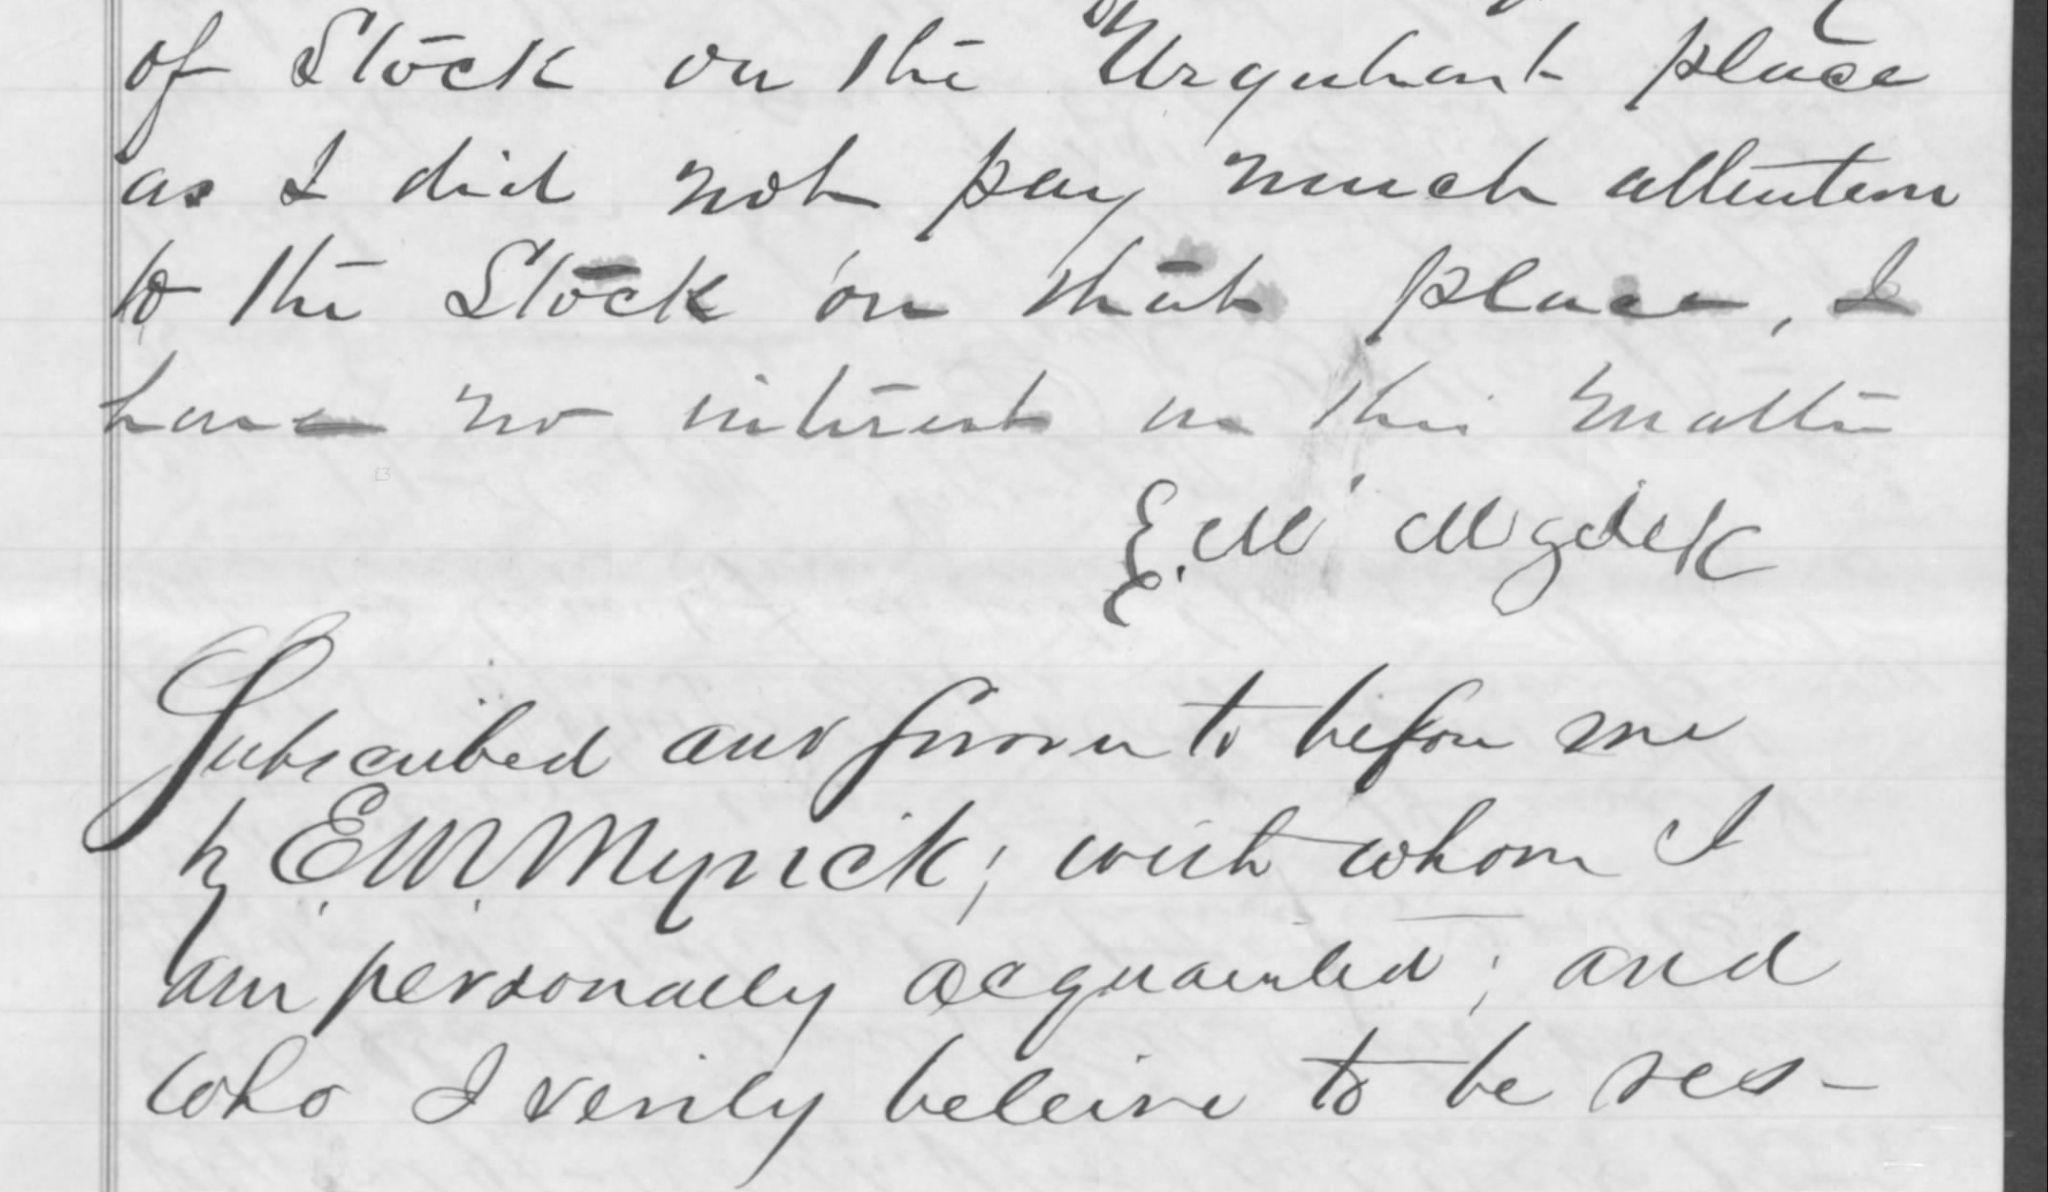 of Stock on the Urquhart place
as I did not pay much attentem
to the Stock on that place, I
have no interest in this matter
E. M Myrick
Subscribed and sworn to before me
by E M Myrick; with whom I
am personally acquainted; and
who I verily beleive to be res-